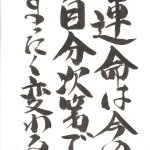 運命は今の
自分次第で
すごく変わる